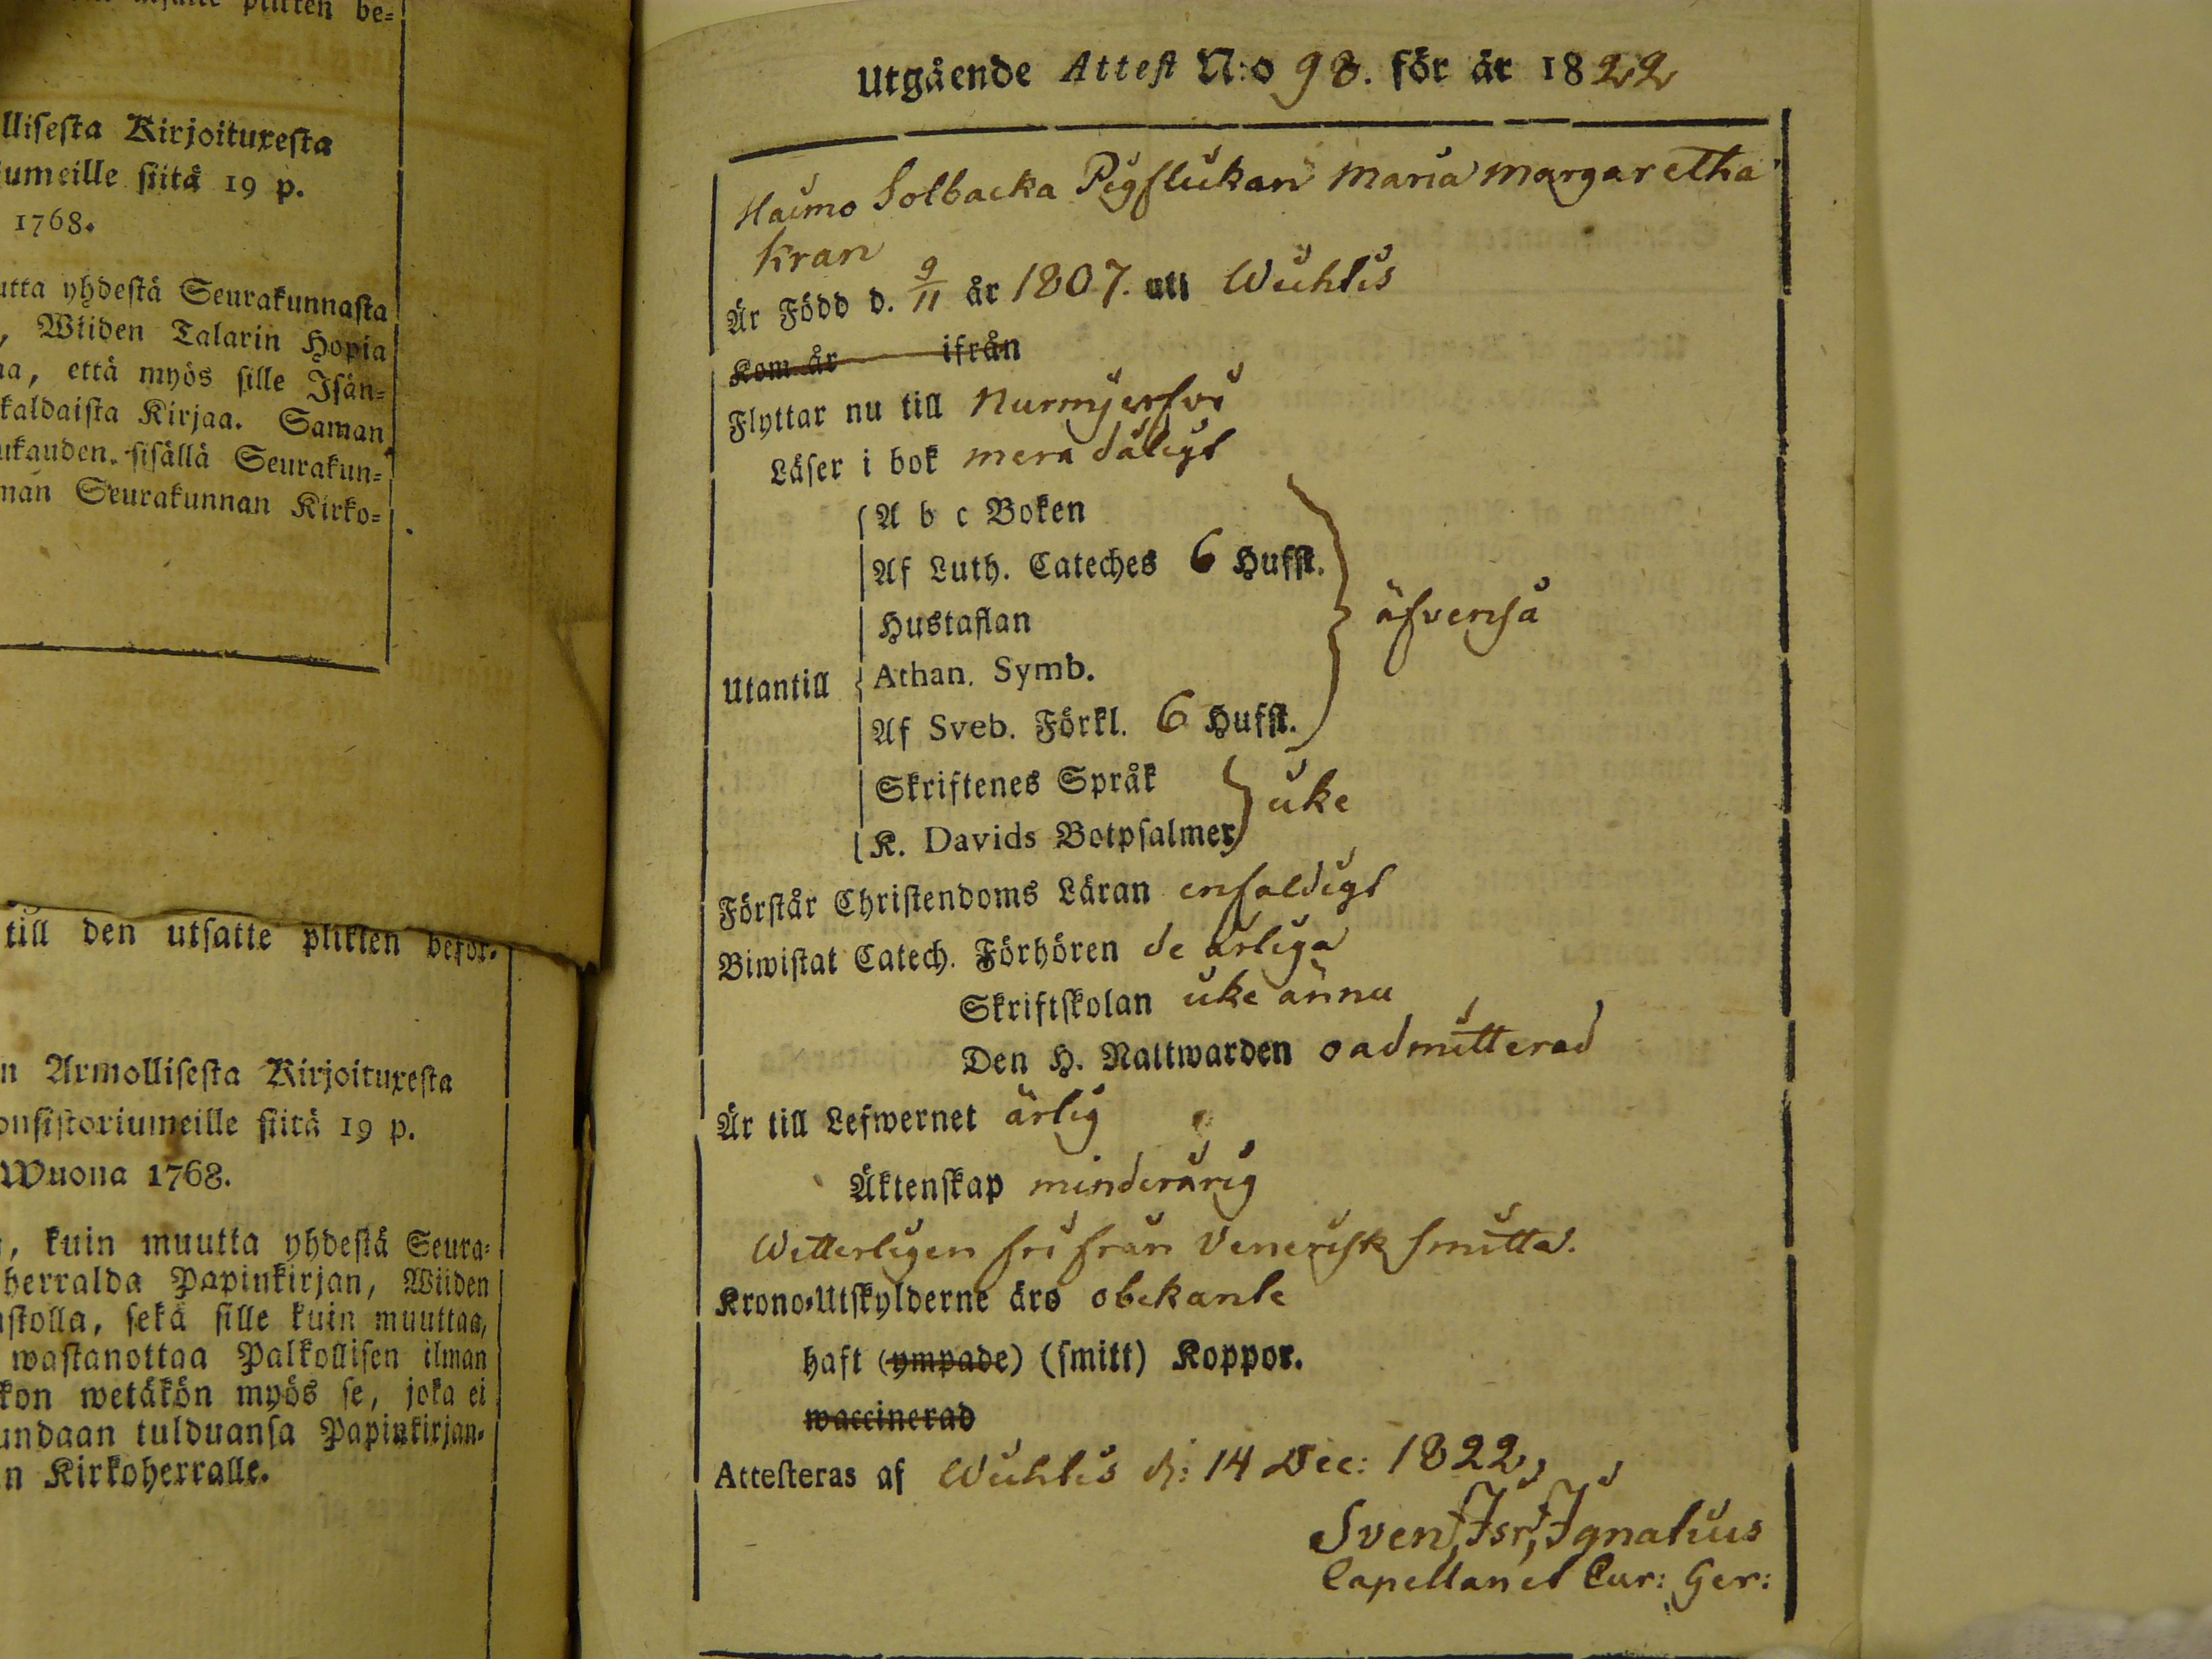 plitten be-
lliſeſta Kirjoituxeſta
umeille ſiitä 19 p.
1768.
utta yhdeſtä Seurakunnaſta
, Wiiden Talarin Hopia
na, että myös ſille Iſän-
kaldaiſta Kirjaa. Saman
ukauden. ſiſällä Seurakun-
nan Seurakunnan Kirko-
till den utſatte plikten befor.
n Armolliſeſta Kirjoituxeſta
onſiſtoriumeille ſiitä 19 p.
Wuona 1768.
, kuin muutta yhdeſtä Seura-
herralda Papinkirjan, Wiiden
ſtolla, ſekä ſille kuin muuttaa,
waſtanottaa Palkolliſen ilman
kon wetäkön myös ſe, joka ei
undaan tulduanſa Papinkirjan-
n Kirkoherralle.
Utgående Atteſt N:o 98. för år 1822
Haimo Solbacka Pigflickan Maria Margaretha
Kran
Är Född d. 9/11 år 1807. uti Wichtis
Kom år ifrån
Flyttar nu till Nurmijerfvi
Läſer i bok mera dåligt
A b c Boken
Af Luth. Cateches 6 Hufſt.
Hustaflan
äfvenså
Utantill
Athan. Symb.
Af Sveb. Förkl. 6 Hufſt.
Skriftenes Språk
icke
K. Davids Botpſalmer
Förſtår Chriſtendoms Läran enfaldigt
Biwiſtat Catech. Förhören de årliga
Skriftſkolan icke ännu
Den H. Nattwarden oadmitterad
Är till Lefwernet ärlig
Äktenſkap minderårig
Witterligen fri från Venerisk smitta.
Krono-Utſkylderne äro obekante
haft (ympade) (ſmitt) Koppor.
waccinerad
Atteſteras af Wichtis d: 14 Dec: 1822,
Sven Isr, Ignatius
Capellan et Cur: Ger: